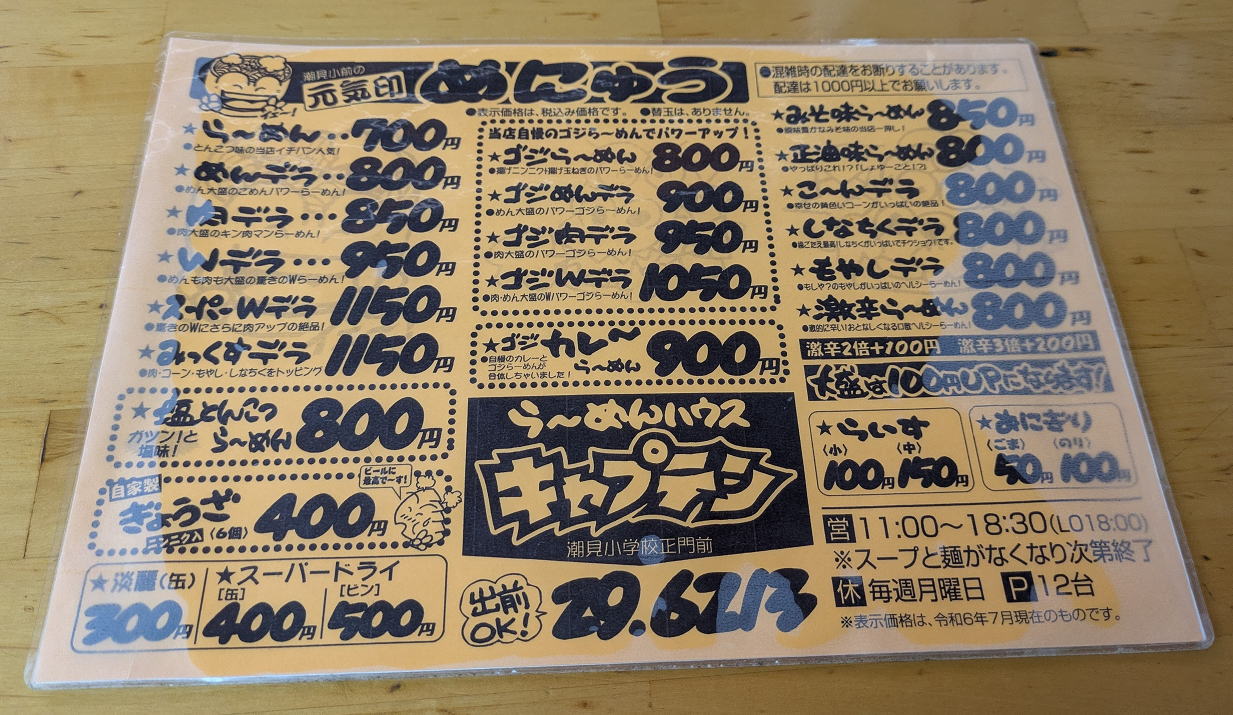 潮見小前の
元気印 めにゅう
●混雑時の配達をお断りすることがあります。
配達は1000円以上でお願いします。
●表示価格は、税込み価格です。 ●替玉は、ありません。
★らーめん‥700円
●とんこつ味の当店イチバン人気!
★めんデラ‥800円
●めん大盛のこめんパワーらーめん!
★肉デラ…850円
●肉大盛のキン肉マンらーめん!
★Wデラ…950円
●めんも肉も大盛の驚きのWらーめん!
★スーパーWデラ 1150円
●驚きのWにさらに肉アップの絶品!
★みっくすデラ 1150円
●肉・コーン・もやし・しなちくをトッピング
★塩とんこつ
らーめん 800円
ガツン!と
塩味!
自家製
ぎょうざ 400円
ニンニク入〈6個〉
ビールに
最高でーす!
★淡麗(缶)
300円
★スーパードライ
[缶] [ビン]
400円 500円
当店自慢のゴジらーめんでパワーアップ!
★ゴジらーめん 800円
●揚げニンニク+揚げ玉ねぎのパワーらーめん!
★ゴジめんデラ 900円
●めん大盛のパワーゴジらーめん!
★ゴジ肉デラ 950円
●肉大盛のパワーゴジらーめん!
★ゴジWデラ 1050円
●肉・めん大盛のWパワーゴジらーめん!
★ゴジカレーらーめん 900円
●自慢のカレーと
ゴジらーめんが
合体しちゃいました!
らーめんハウス
キャプテン
潮見小学校正門前
出前OK! 29.6213
★みそ味らーめん 850円
★正油味らーめん 800円
●やっぱりこれ!?「しょゆーこと!?」
★こーんデラ 800円
●幸せの黄色いコーンがいっぱいの絶品!
★しなちくデラ 800円
●歯ごたえ最高!しなちくがいっぱいでチウショウ!です。
★もやしデラ 800円
●もしや?のもやしがいっぱいのヘルシーらーめん!
★激辛らーめん 800円
激辛2倍+100円 激辛3倍+200円
★らいす
(小) (中)
100円 150円
★おにぎり
(ごま) (のり)
90円 100円
営 11:00〜18:30(LO18:00)
※スープと麺がなくなり次第終了
休 毎週月曜日 P 12台
※表示価格は、令和6年7月現在のものです。